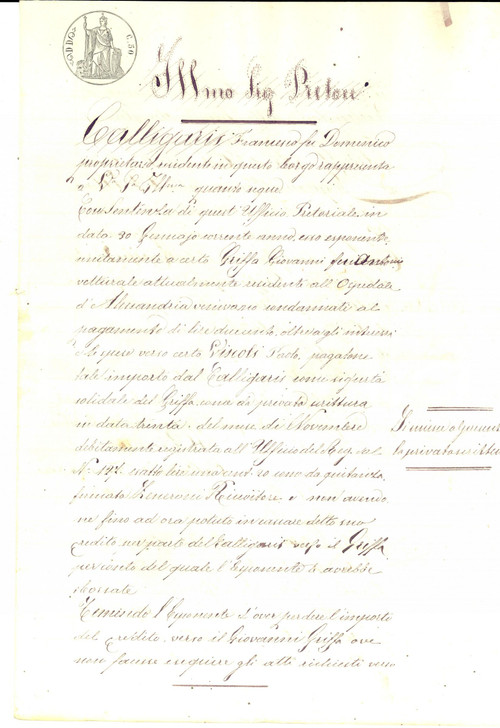 C. 50
Ill mo Sig Pretore
Calligaris Francesco fu Domenico
proprietario residente in questo borgo rappresenta
a quanto segue
Con Sentenza di quest'Ufficio Pretoriale in
data 30 Gennajo corrente anno, esso esponente
unitamente a certo Griffa Giovanni fu Antonio
vetturale attualmente residenti all' Ospedale
d'Alessandria venivano condannati al
pagamento di lire duecento, oltre agli interessi
e spese verso certo Viscoli Paolo, pagatone
tale importo dal Calligaris come sigurtà
solidale del Griffa, come da privata scrittura
in data trenta del mese di Novembre
debitamente registrata all' Ufficio del Reg.
N. 127. lire una cent. 20 come da quitanza
firmata Ricevitore e non avendo
ne fino ad ora potuto incassare detto suo
credito per parte del Calligaris verso il Griffa
per conto del quale l'Esponente le avrebbe
sborsate
Temendo l'Esponente d'aver perdere l'importo
del credito verso il Giovanni Griffa ove
non faccia eseguire gli atti richiesti verso
la privata scrittura